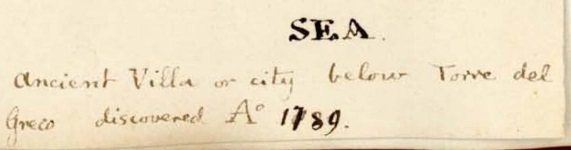 SEA.
Ancient Villa or city below Torre del
Greco discovered Aº 1789.